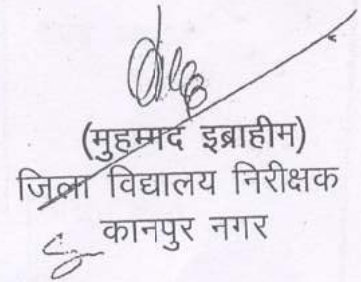 (मुहम्मद इब्राहीम)
जिला विद्यालय निरीक्षक
कानपुर नगर